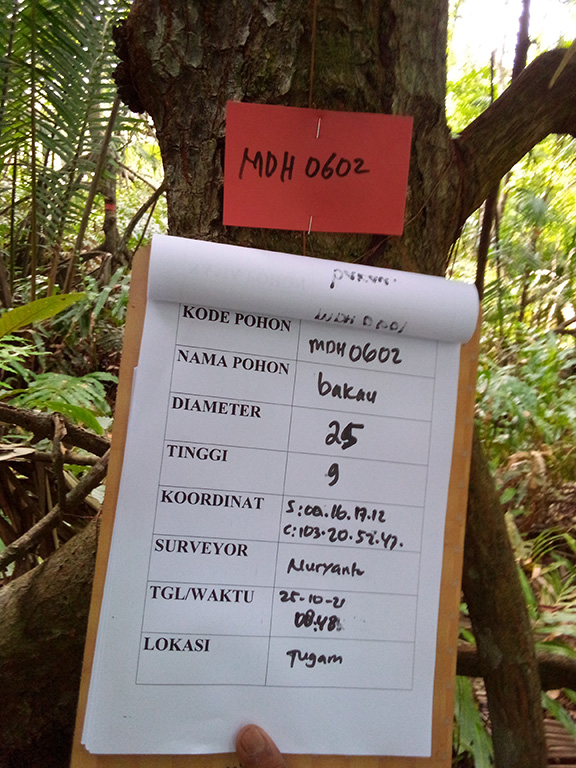 MDH 0602
KODE POHON MDH0602
NAMA POHON bakau
DIAMETER 25
TINGGI 9
KOORDINAT S:00.16.17.12
C:103.20.52.47.
SURVEYOR Nuryanto
TGL/WAKTU 25-10-21
08.48
LOKASI Tugam